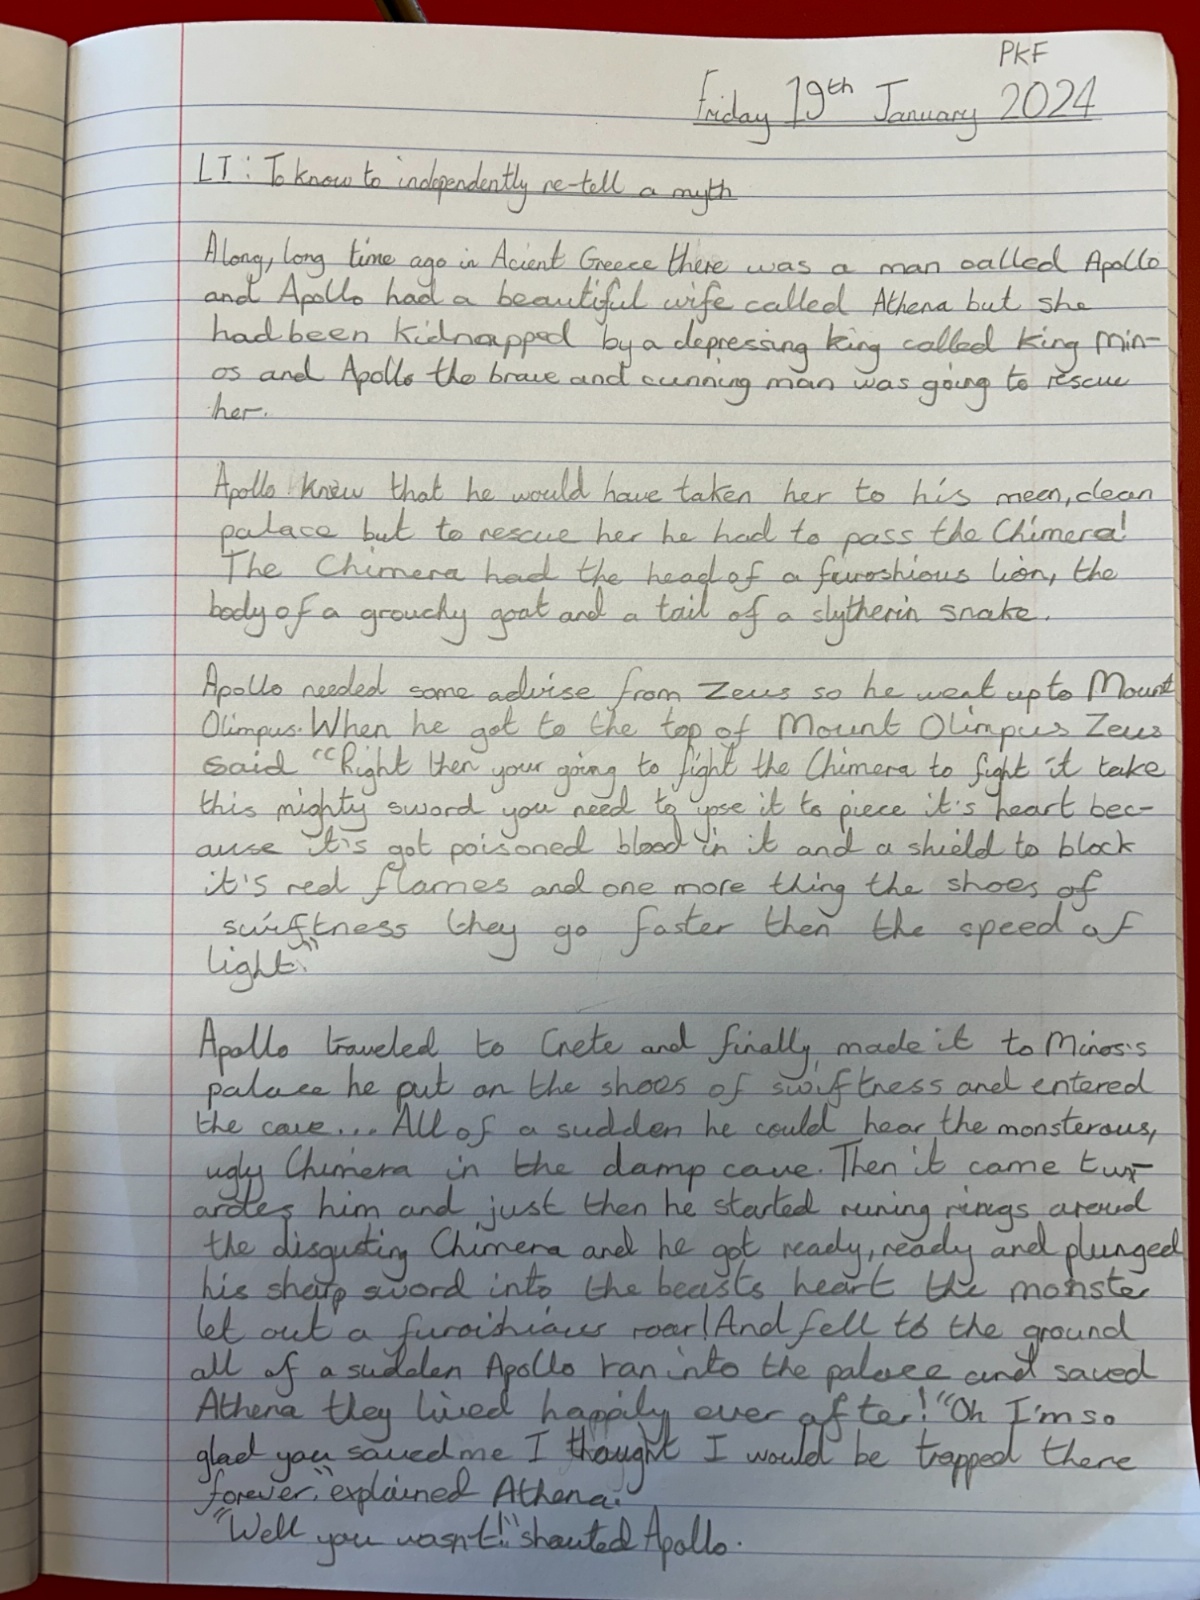 PKF
Friday 19th January 2024
LI: To know to independently re-tell a myth
Along, long time ago in Acient Greece there was a man called Apollo
and Apollo had a beautiful wife called Athena but she
had been kidnapped by a depressing king called King Min-
os and Apollo the brave and cunning man was going to rescue
her.
Apollo knew that he would have taken her to his meen, clean
palace but to rescue her he had to pass the Chimera!
The Chimera had the head of a furoshious lion, the
body of a grouchy goat and a tail of a slytherin snake.
Apollo needed some advise from Zeus so he went up to Mount
Olimpus. When he got to the top of Mount Olimpus Zeus
said "Right then your going to fight the Chimera to fight it take
this mighty sword you need to use it to piece it's heart bec-
ause it's got poisoned blood in it and a shield to block
it's red flames and one more thing the shoes of
swiftness they go faster then the speed of
light."
Apollo traveled to Crete and finally made it to Minos's
palace he put on the shoes of swiftness and entered
the cave... All of a sudden he could hear the monsterous,
ugly Chimera in the damp cave. Then it came tuw-
ardes him and just then he started runing rings aroud
the disgusting Chimera and he got ready, ready and plunged
his sharp sword into the beasts heart the monster
let out a furoishious roar! And fell to the ground
all of a sudden Apollo ran into the palace and saved
Athena they lived happily ever after! "Oh I'm so
glad you saved me I thought I would be trapped there
forever," explained Athena.
"Well you wasn't!" shouted Apollo.